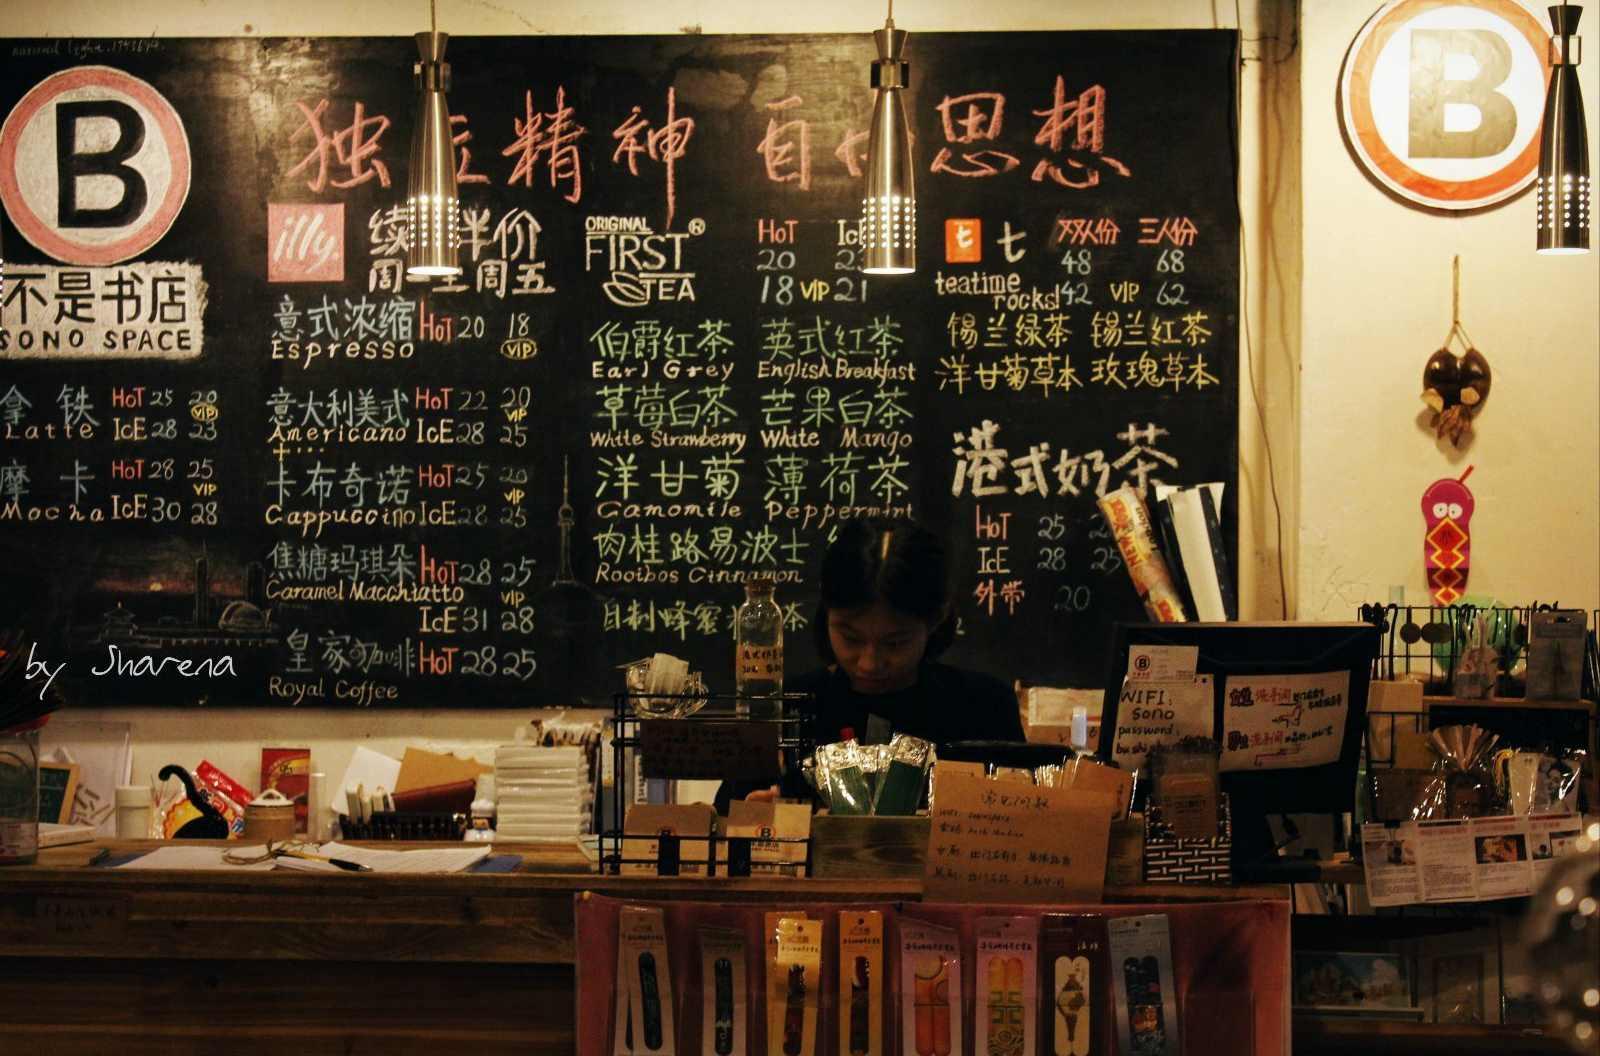 B
不是书店
SONO SPACE
独立精神 自由思想
B
illy
续杯半价
周一至周五
拿铁 HOT 25 20 VIP
Latte ICE 28 23
摩卡 HOT 28 25 VIP
Mocha ICE 30 28
意式浓缩 HOT 20 18
Espresso VIP
意大利美式 HOT 22 20 VIP
Americano ICE 28 25
卡布奇诺 HOT 25 20 VIP
Cappuccino ICE 28 25
焦糖玛琪朵 HOT 28 25
Caramel Macchiatto VIP
ICE 31 28
皇家咖啡 HOT 28 25
Royal Coffee
ORIGINAL
FIRST
TEA
HOT ICE
20
18 VIP 21
伯爵红茶 英式红茶
Earl Grey English Breakfast
草莓白茶 芒果白茶
White Strawberry White Mango
洋甘菊 薄荷茶
Camomile Peppermint
肉桂路易波士
Rooibos Cinnamon
自制蜂蜜 茶
七 七 双人份 三人份
48 68
teatime rocks! 42 VIP 62
锡兰绿茶 锡兰红茶
洋甘菊草本 玫瑰草本
港式奶茶
HOT 25
ICE 28 25
外带 20
by Sharena
WIFI:
sono
password:
常见问题
B